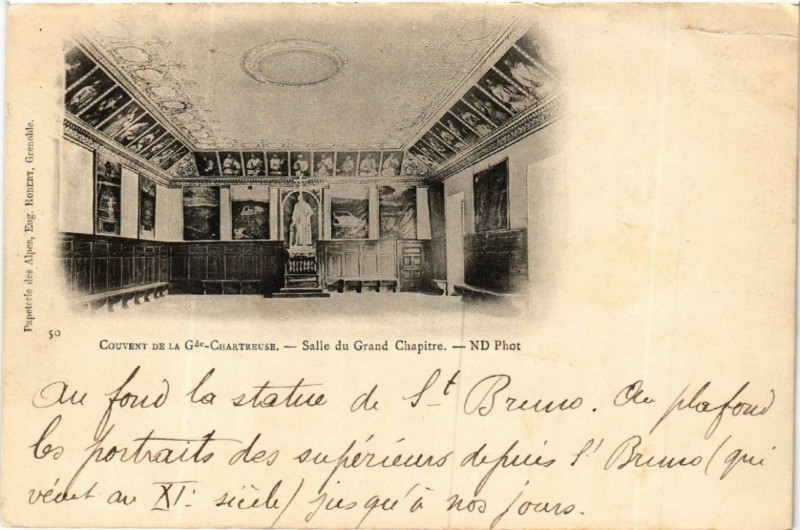 Papeterie des Alpes, Eug. ROBERT, Grenoble.
50
COUVENT DE LA Gde-CHARTREUSE. — Salle du Grand Chapitre. — ND Phot
Au fond la statue de St Bruno. Au plafond
les portraits des supérieurs depuis St Bruno (qui
vécut au XIe siècle) jusqu'à nos jours.